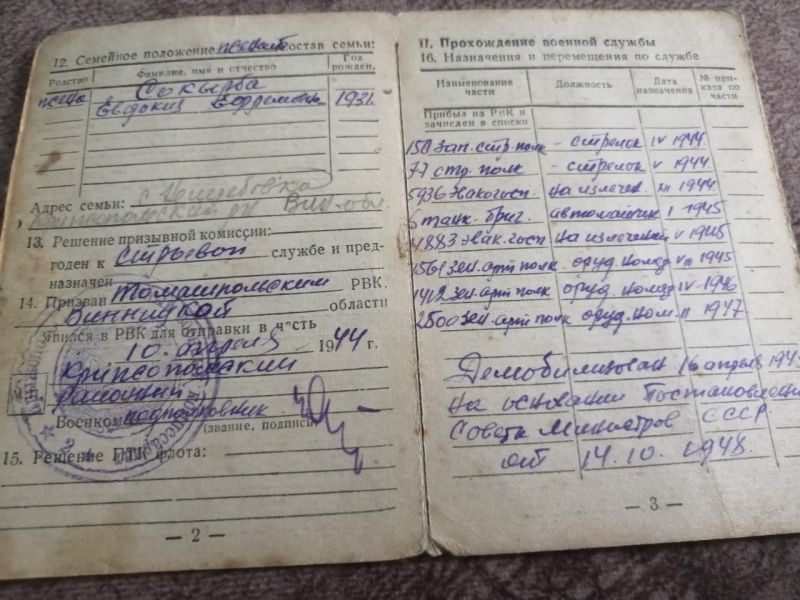 12. Семейное положение женат Состав семьи:
Родство
Фамилия, имя и отчество
Год рожден.
жена
Сокырба
Евдокия
1931
Адрес семьи: с.
Крыжопольский рн Вин. обл.
13. Решение призывной комиссии:
годен к строевой службе и пред-
назначен
14. Призван Томашпольским РВК,
Винницкой области
Явился в РВК для отправки в часть
10. апреля 1944 г.
Крыжопольский
Районный
Военком подполковник
(звание, подпись)
15. Решение ПТК флота:
— 2 —
II. Прохождение военной службы
16. Назначения и перемещения по службе
Наименование части
Должность
Дата назначения
№ приказа по части
Прибыл из РВК и зачислен в списки
158 зап. стр. полк – стрелок IV 1944
77 стр. полк – стрелок V 1944
5936 Эвакогосп. на излечен. XII 1944
6 танк. бриг. автоматчик I 1945
4883 Эвак. госп на излечении V 1945
1561 зен. арт полк. оруд. номер VII 1945
1412 зен. арт полк оруд. номер IV 1946
2500 зен. арт полк оруд. ном. II 1947
Демобилизован 16 апреля
на основании Постановления
Совета Министров СССР.
от 14.10.1948.
— 3 —